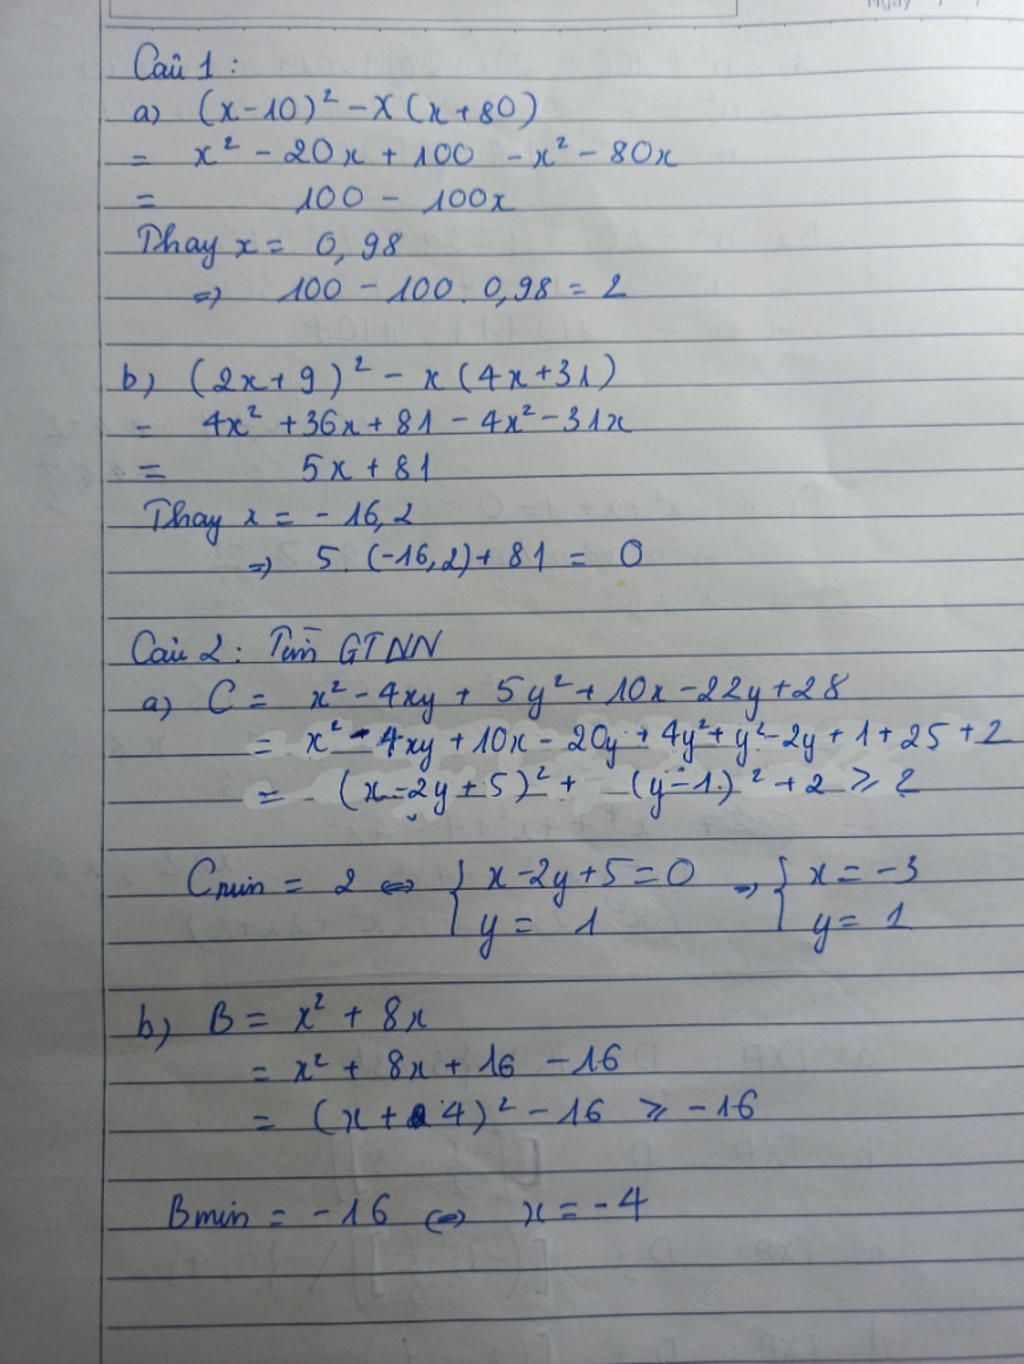 Ngày
Câu 1 :
a) (x-10)² - x(x+80)
= x² - 20x + 100 - x² - 80x
= 100 - 100x
Thay x = 0,98
=> 100 - 100 . 0,98 = 2
b) (2x+9)² - x(4x+31)
= 4x² + 36x + 81 - 4x² - 31x
= 5x + 81
Thay x = - 16,2
=> 5 . (-16,2) + 81 = 0
Câu 2 : Tìm GTNN
a) C = x² - 4xy + 5y² + 10x - 22y + 28
= x² - 4xy + 10x - 20y + 4y² + y² - 2y + 1 + 25 + 2
= (x - 2y + 5)² + (y - 1)² + 2 ≥ 2
Cmin = 2 <=> { x - 2y + 5 = 0 => { x = -3
y = 1 y = 1
b) B = x² + 8x
= x² + 8x + 16 - 16
= (x + 4)² - 16 ≥ -16
Bmin = -16 <=> x = -4